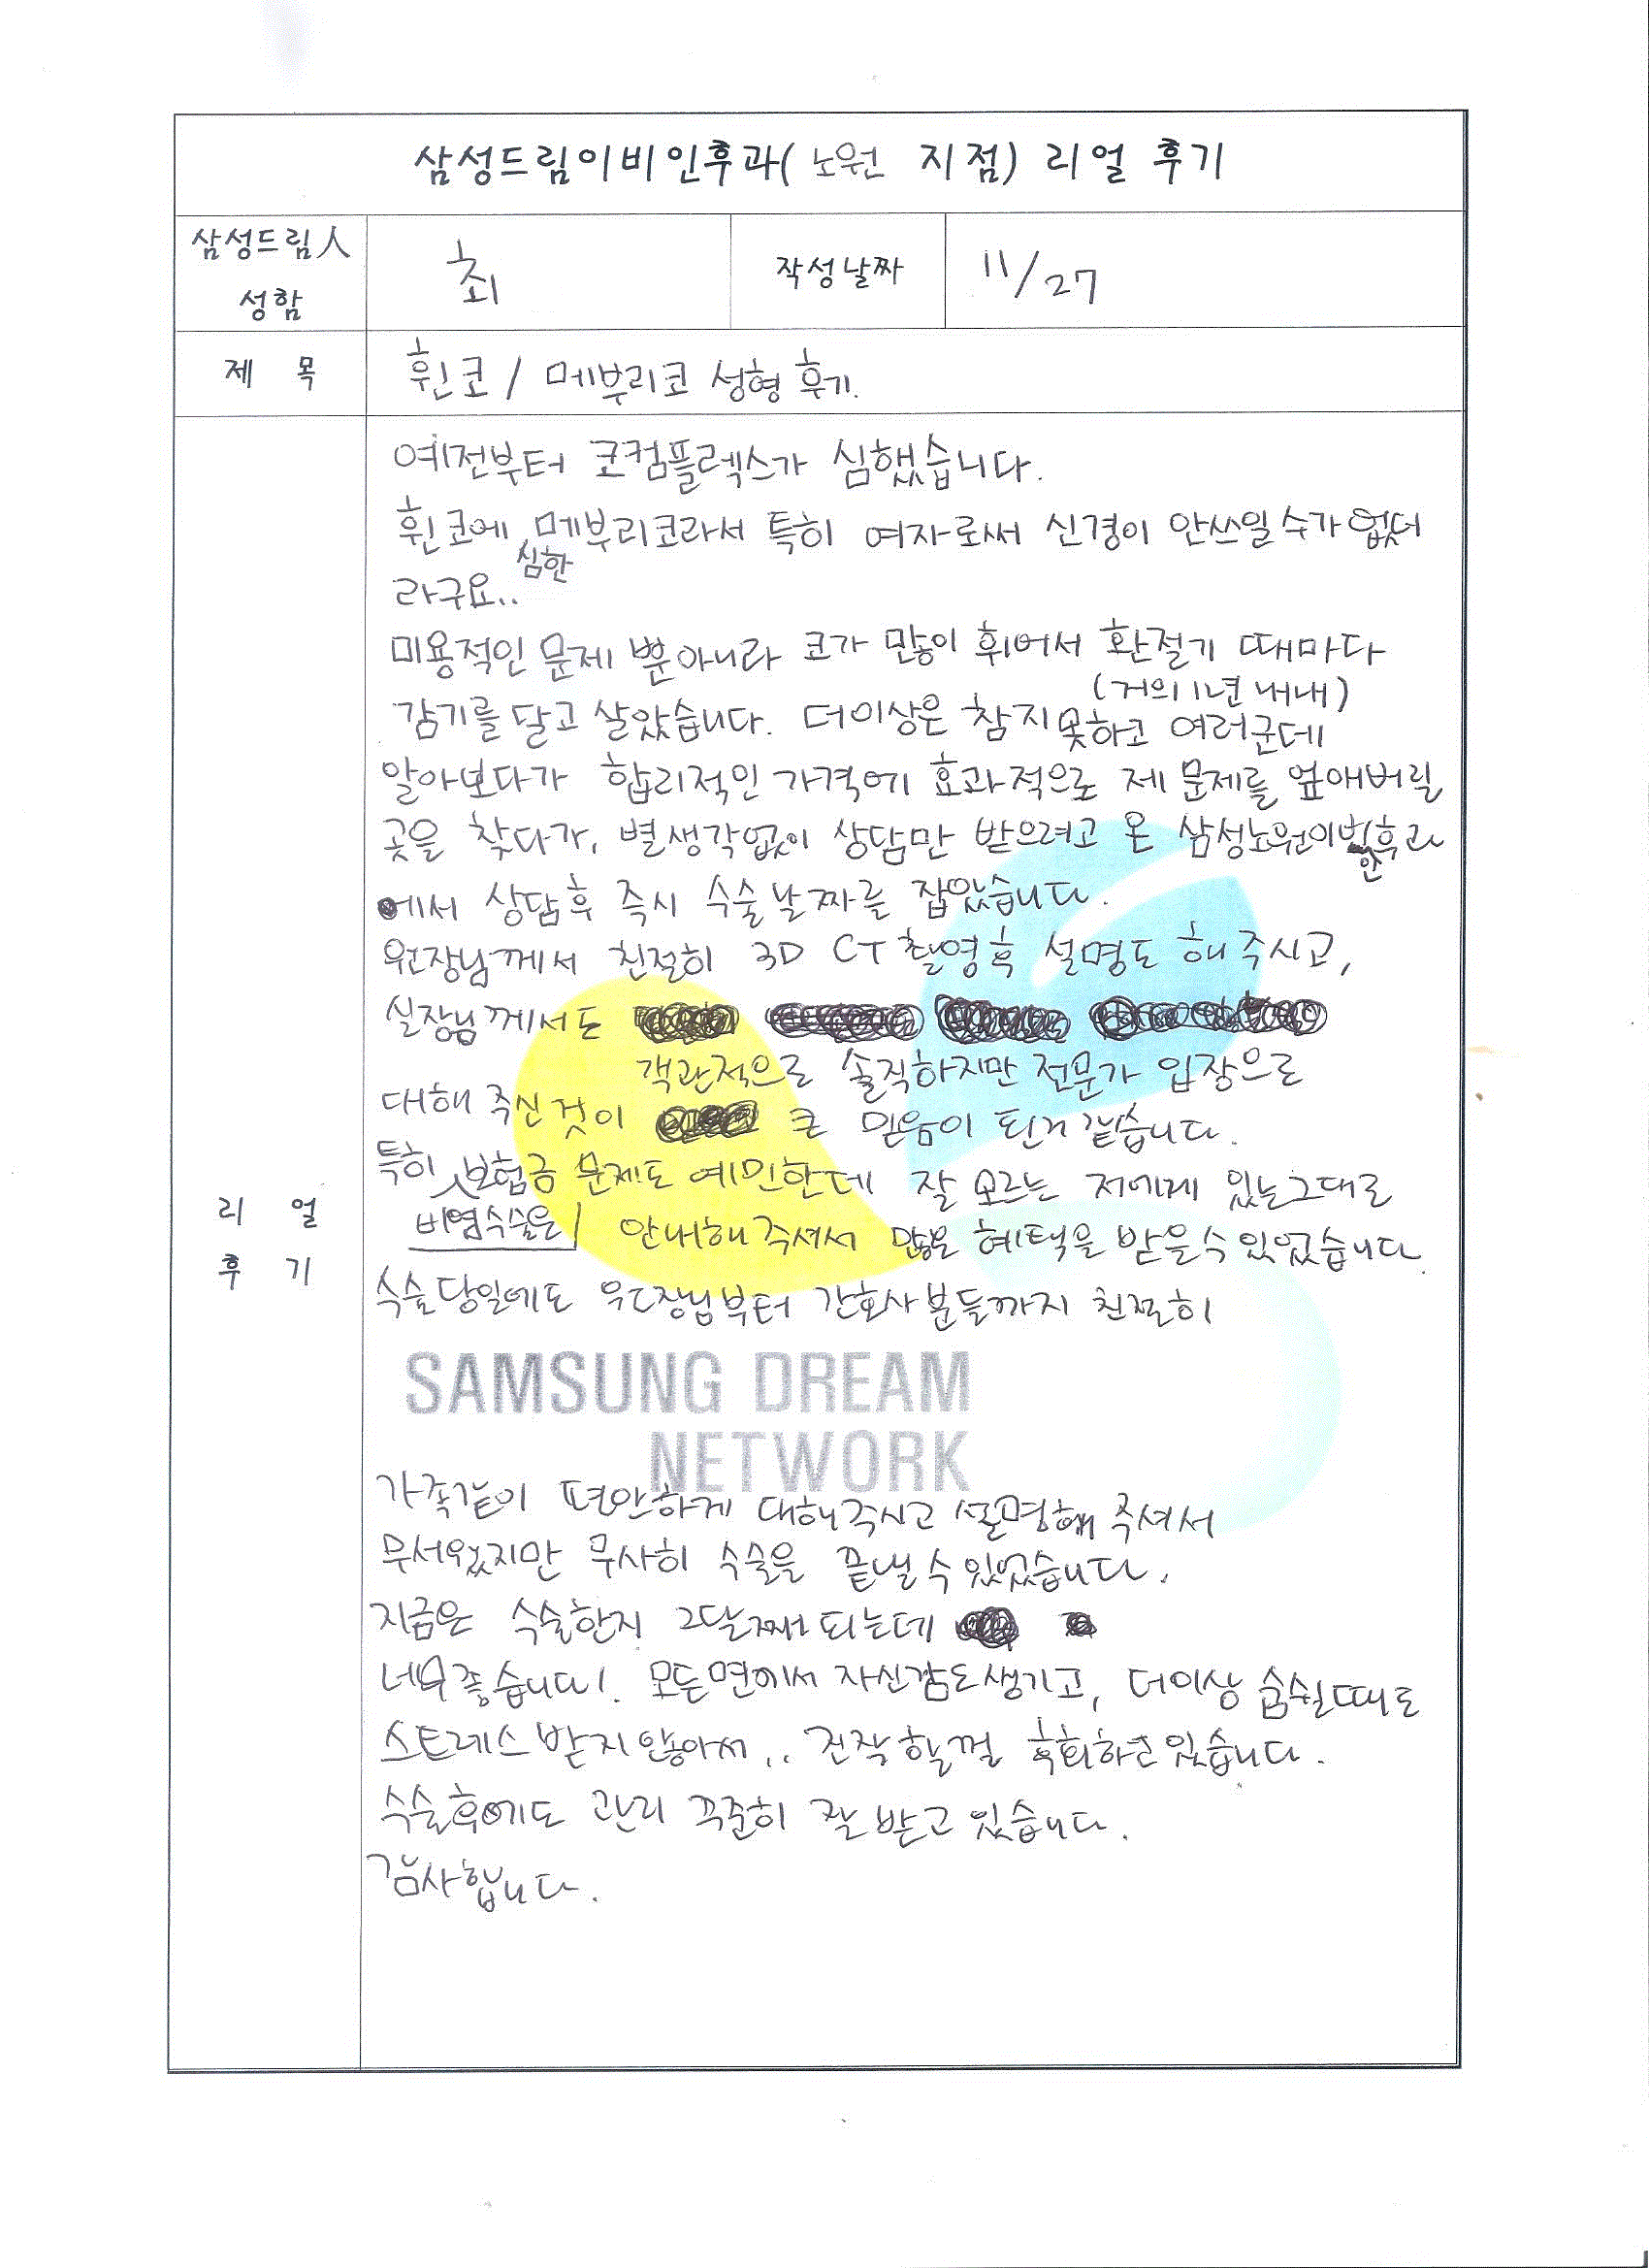 삼성드림이비인후과( 노원 지점) 리얼 후기
삼성드림人
성함
최
작성날짜
11/27
제 목
휜코 / 메부리코 성형 후기.
리 얼
후 기
예전부터 코컴플렉스가 심했습니다.
휜코에 심한 메부리코라서 특히 여자로써 신경이 안쓰일수가 없더
라구요..
미용적인 문제 뿐아니라 코가 많이 휘어서 환절기 때마다
(거의 1년 내내)
감기를 달고 살았습니다. 더이상은 참지못하고 여러군데
알아보다가 합리적인 가격에 효과적으로 제 문제를 없애버릴
곳을 찾다가, 별생각없이 상담만 받으려고 온 삼성노원이비인후과
에서 상담후 즉시 수술날짜를 잡았습니다.
원장님께서 친절히 3D CT 촬영후 설명도 해주시고,
실장님께서도
객관적으로 솔직하지만 전문가 입장으로
대해 주신것이 큰 믿음이 된거 같습니다.
특히 비염수술은 보험금 문제도 예민한데 잘 모르는 저에게 있는그대로
안내해주셔서 많은 혜택을 받을수있었습니다.
수술당일에도 원장님부터 간호사분들까지 친절히
SAMSUNG DREAM
NETWORK
가족같이 편안하게 대해주시고 설명해 주셔서
무서웠지만 무사히 수술을 끝낼수있었습니다.
지금은 수술한지 2달째 되는데
너무좋습니다!. 모든면에서 자신감도생기고, 더이상 숨쉴때도
스트레스받지않아서.. 진작할껄 후회하고있습니다.
수술후에도 관리 꾸준히 잘받고있습니다.
감사합니다.